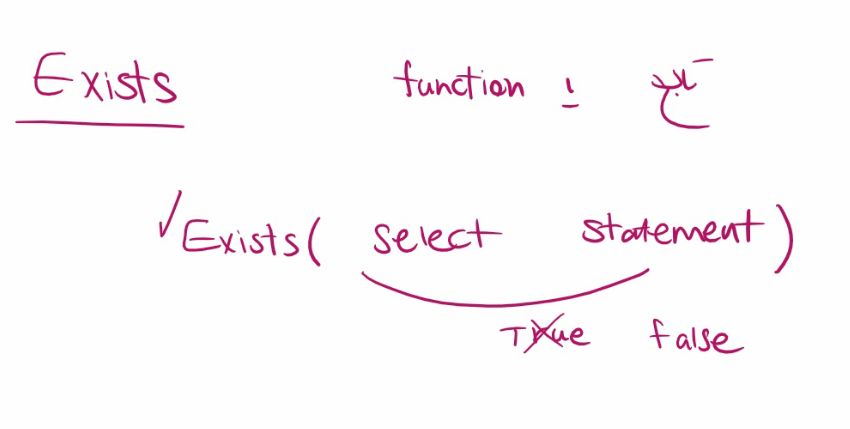 Exists
function يا تابع
✓ Exists( select statement )
True false